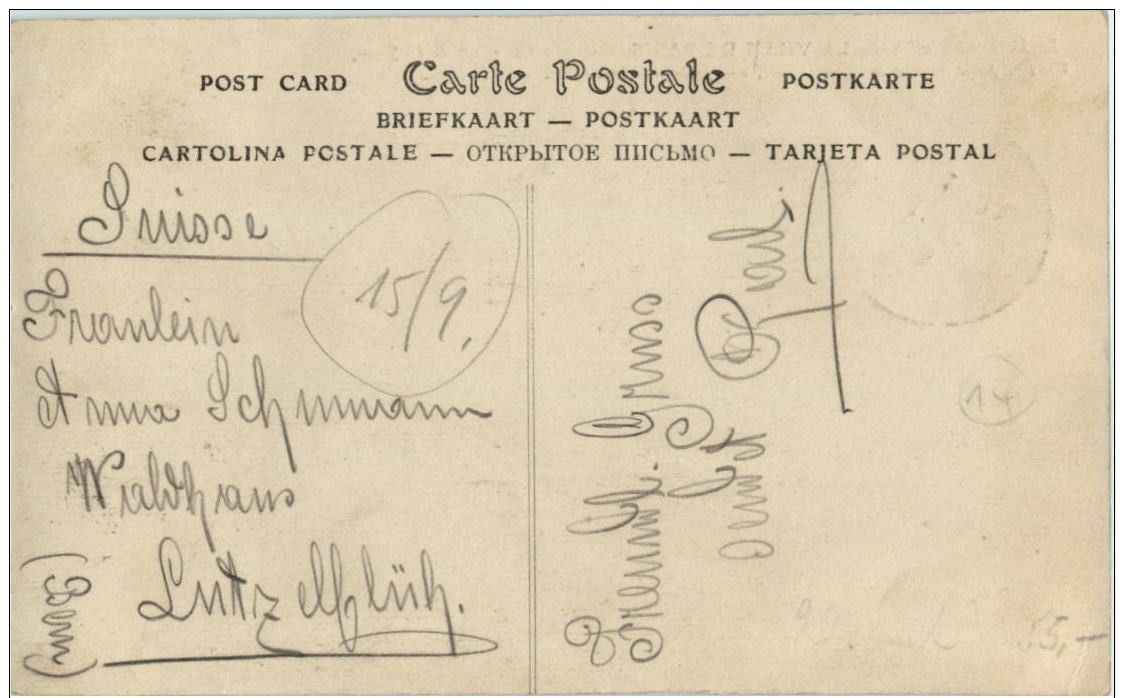 POST CARD Carte Postale POSTKARTE
BRIEFKAART — POSTKAART
CARTOLINA POSTALE — ОТКРЫТОЕ ПИСЬМО — TARJETA POSTAL
Suisse
15/9.
Fraulein
Anna Schumann
Waldhaus
Lützelflüh.
(Bern)
Freundl. Gruss
aus
Paul.
14